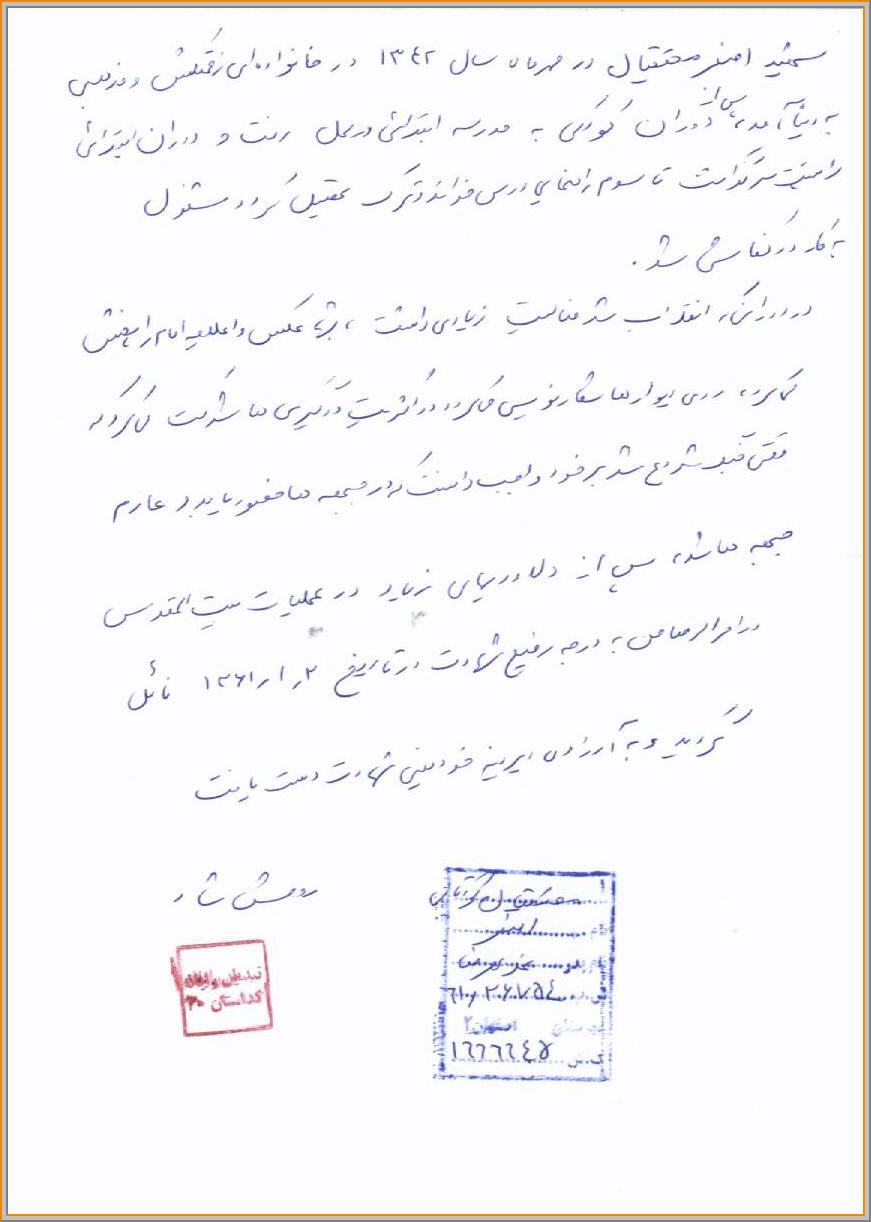 شهید اصغر محققیان در مهرماه سال ۱۳۴۲ در خانواده‌ای زحمتکش و مذهبی
به دنیا آمد، پس از دوران کودکی به مدرسه ابتدائی در محل رفت و دوران ابتدائی
را پشت سر گذاشت تا سوم راهنمایی درس خواند و ترک تحصیل کرد و مشغول
به کار در کفاشی شد.
در دورانیکه انقلاب شد فعالیت زیادی داشت، عکس و اعلامیه امام را پخش
می‌کرد، روی دیوارها شعارنویسی می‌کرد و در اکثریت درگیری‌ها شرکت می‌کرد و
وقتی جنگ شروع شد بر خود واجب دانست که در جبهه‌ها حضور یابد و عازم
جبهه‌ها شد، پس از دلاوریهای زیاد در عملیات بیت المقدس
به درجه رفیع شهادت در تاریخ ۱۳۶۱/۱/۲ نائل
گردید و به آرزوی دیرینه خود یعنی شهادت دست یافت
روحش شاد
اصغر
نام پدر
اصفهان ۲
گلستان